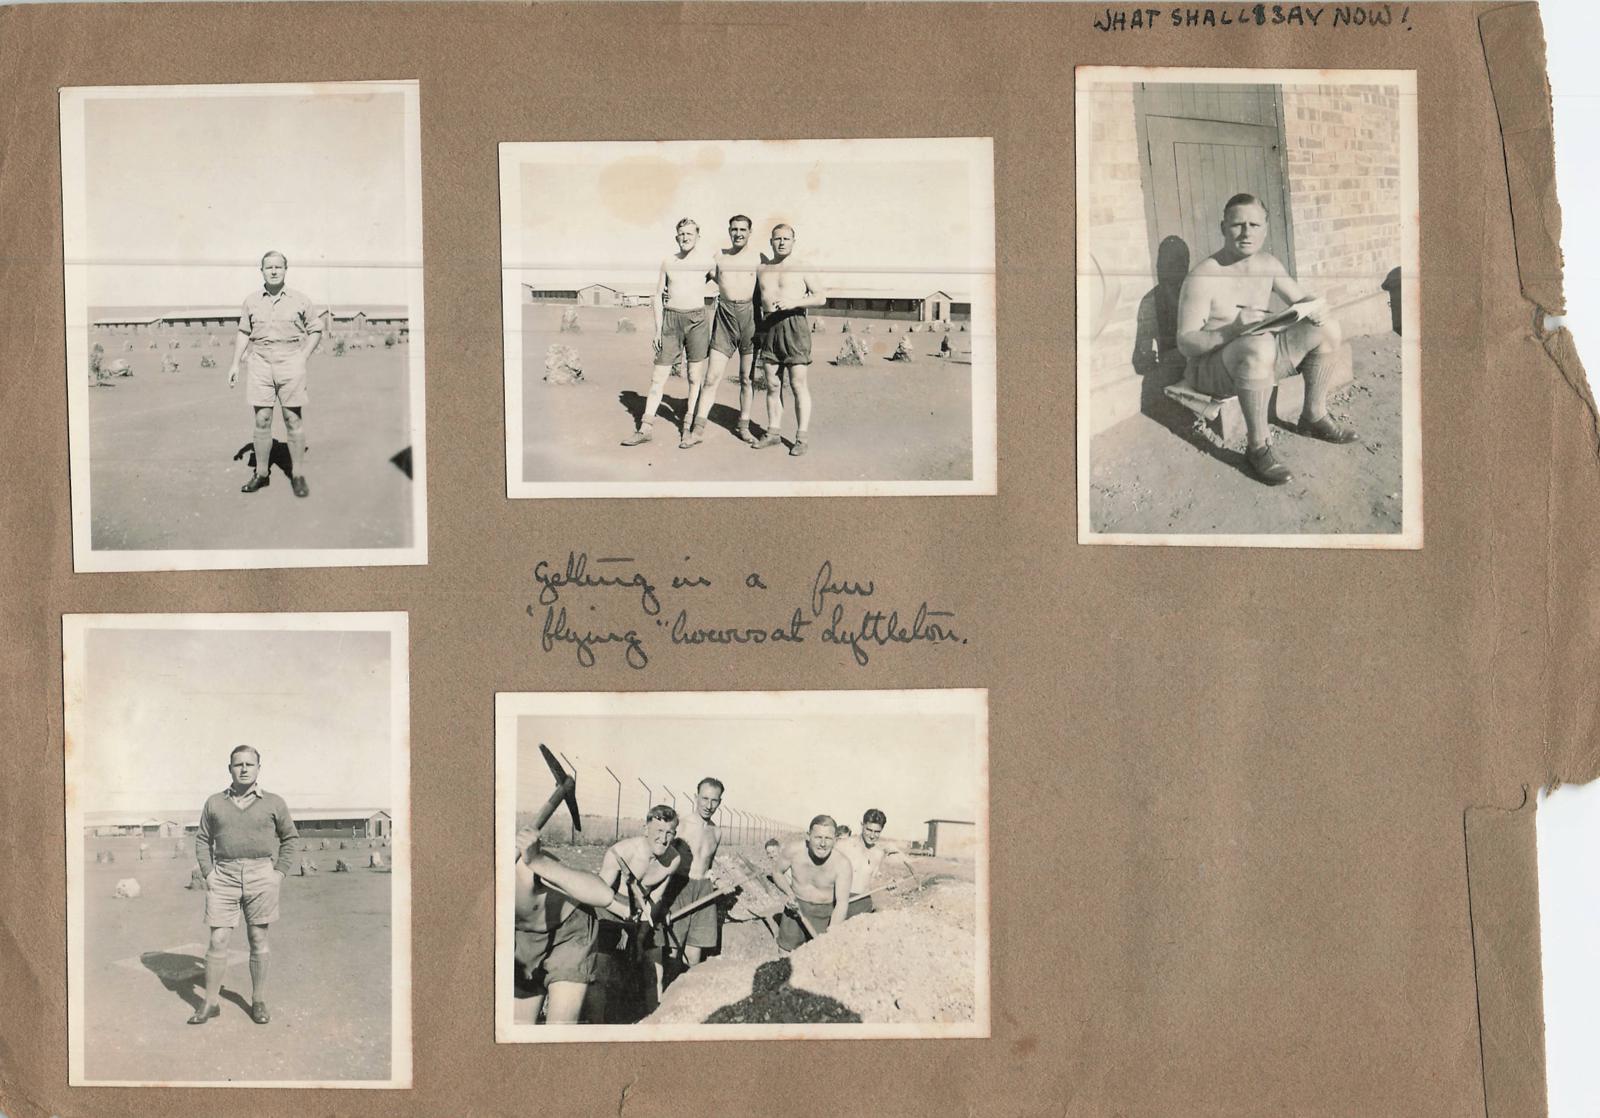 WHAT SHALL I SAY NOW!
Getting in a few
"flying" hours at Lyttleton.